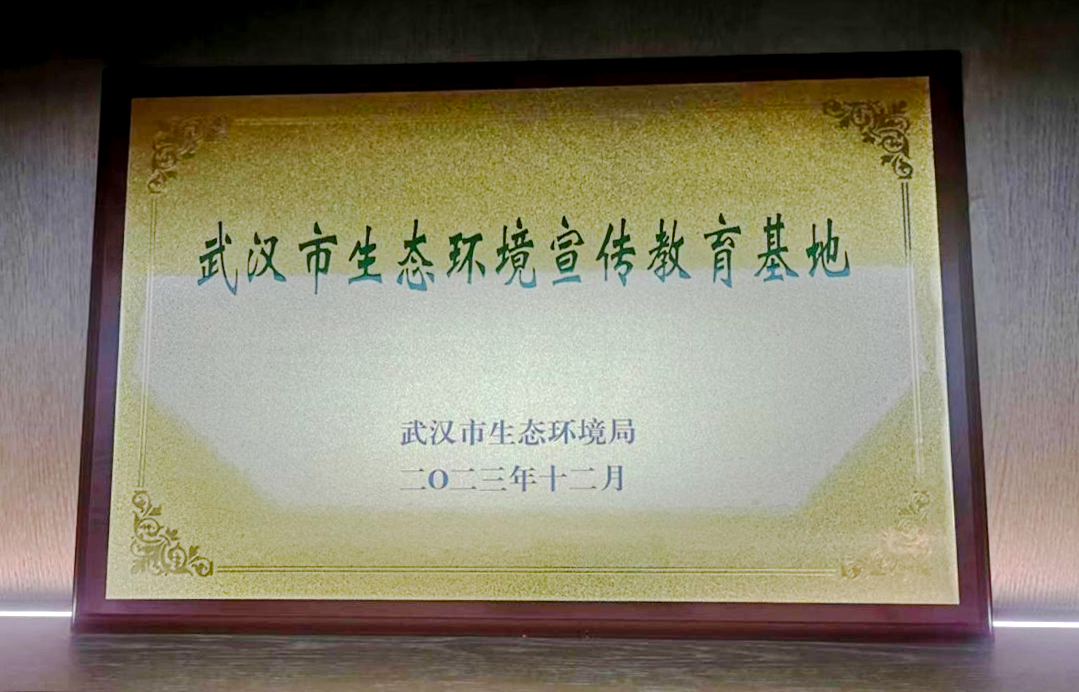 武汉市生态环境宣传教育基地
武汉市生态环境局
二O二三年十二月